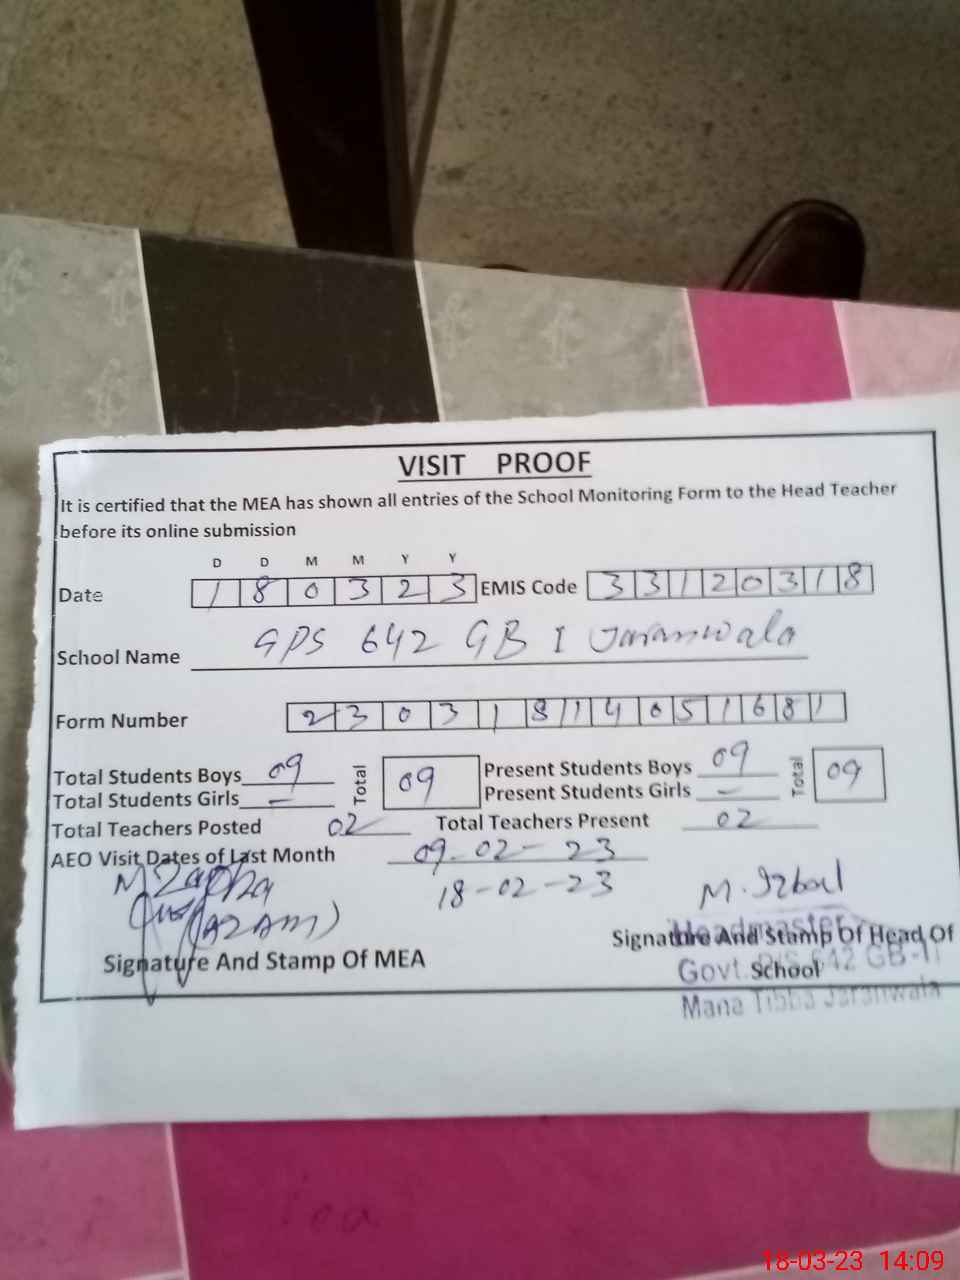 VISIT PROOF
It is certified that the MEA has shown all entries of the School Monitoring Form to the Head Teacher
before its online submission
D D M M Y Y
Date 1 8 0 3 2 3 EMIS Code 3 3 1 2 0 3 1 8
School Name GPS 642 GB I Jaranwala
Form Number 2 3 0 3 1 8 1 4 0 5 1 6 8 1
Total Students Boys 09 Total 09 Present Students Boys 09 Total 09
Total Students Girls - Present Students Girls -
Total Teachers Posted 02 Total Teachers Present 02
AEO Visit Dates of Last Month 09-02-23
18-02-23
(AZAM)
M. Iqbal
Signature And Stamp Of MEA
Signature And Stamp Of Head Of
School
Headmaster
Govt. 642 GB-
Mana Tibba Jaranwala
18-03-23 14:09